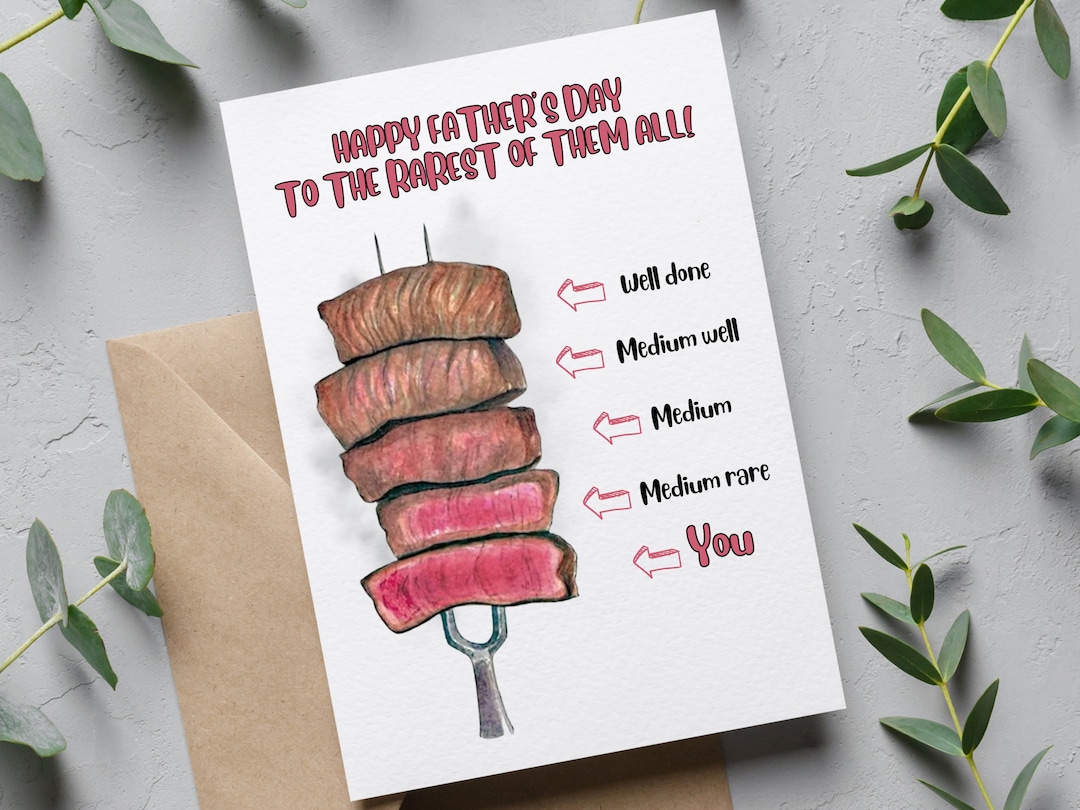 HAPPY FATHER'S DAY
TO THE RAREST OF THEM ALL!
Well done
Medium well
Medium
Medium rare
You